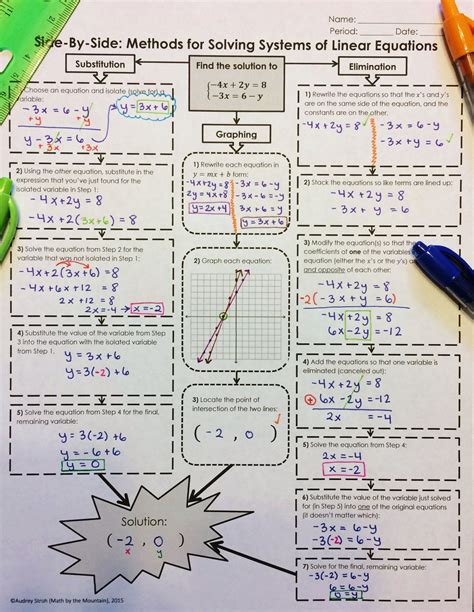 Name:
Period: Date:
Side-By-Side: Methods for Solving Systems of Linear Equations
Substitution
1) Choose an equation and isolate (solve for) a
variable:
-3x = 6 - y
+y +y
y - 3x = 6
+3x +3x
y = 3x + 6
2) Using the other equation, substitute in the
expression that you've just found for the
isolated variable in Step 1:
-4x + 2y = 8
-4x + 2(3x+6) = 8
3) Solve the equation from Step 2 for the
variable that was not isolated in Step 1:
-4x + 2(3x+6) = 8
-4x + 6x + 12 = 8
2x + 12 = 8
2x = -4 → x = -2
4) Substitute the value of the variable from Step
3 into the equation with the isolated variable
from Step 1.
y = 3x + 6
y = 3(-2) + 6
5) Solve the equation from Step 4 for the final,
remaining variable:
y = 3(-2) + 6
y = -6 + 6
y = 0
Find the solution to
{-4x + 2y = 8
{-3x = 6 - y
Graphing
1) Rewrite each equation in
y = mx + b form:
-4x+2y = 8
2y = 4x+8
y = 2x+4
-3x = 6-y
-3x-6 = -y
3x+6 = y
y = 3x+6
2) Graph each equation:
3) Locate the point of
intersection of the two lines:
(-2, 0)
Elimination
1) Rewrite the equations so that the x's and y's
are on the same side of the equation, and the
constants are on the other.
-4x + 2y = 8 -3x = 6 - y
-3x + y = 6
2) Stack the equations so like terms are lined up:
-4x + 2y = 8
-3x + y = 6
3) Modify the equation(s) so that the
coefficients of one of the variables
equation (either the x's or the y's) ar
and opposite of each other:
-4x + 2y = 8
-2(-3x + y = 6)
-4x + 2y = 8
6x - 2y = -12
4) Add the equations so that one variable is
eliminated (canceled out):
-4x + 2y = 8
+ 6x - 2y = -12
2x = -4
5) Solve the equation from Step 4:
2x = -4
x = -2
6) Substitute the value of the variable just solved
for (in Step 5) into one of the original equations
(it doesn't matter which):
-3x = 6 - y
-3(-2) = 6 - y
7) Solve for the final, remaining variable:
-3(-2) = 6 - y
6 = 6 - y
Solution:
(-2, 0)
x y
©Audrey Stroh (Math by the Mountain), 2015